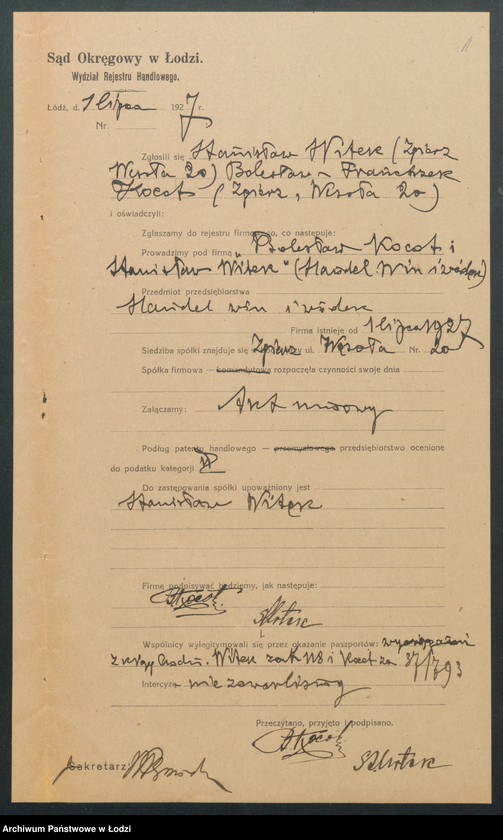 Sąd Okręgowy w Łodzi.
Wydział Rejestru Handlowego.
Łódź, d. 1 lipca 1927 r.
Nr.
Zgłosili się Stanisław Witek (Zgierz
Wesoła 20) Bolesław - Franciszek
Kocot (Zgierz, Wesoła 20)
i oświadczyli:
Zgłaszamy do rejestru firmowego, co następuje:
Prowadzimy pod firmą „Bolesław Kocot i
Stanisław Witek" (Handel Win i wódek)
Przedmiot przedsiębiorstwa
Handel win i wódek
Firma istnieje od 1 lipca 1927
Siedziba spółki znajduje się Zgierz przy ul. Wesoła Nr. 20
Spółka firmowa — komandytowa rozpoczęła czynności swoje dnia
Załączamy: Akt umowy
Podług patentu handlowego — przemysłowego przedsiębiorstwo ocenione
do podatku kategorji
Do zastępowania spółki upoważniony jest
Stanisław Witek
Firmę podpisywać będziemy, jak następuje:
BKocot
StWitek
Wspólnicy wylegitymowali się przez okazanie paszportów:
Witek za N 118 i Kocot za 37/793
Intercyza nie zawarliśmy
Przeczytano, przyjęto i podpisano.
BKocot
StWitek
Sekretarz:
Archiwum Państwowe w Łodzi